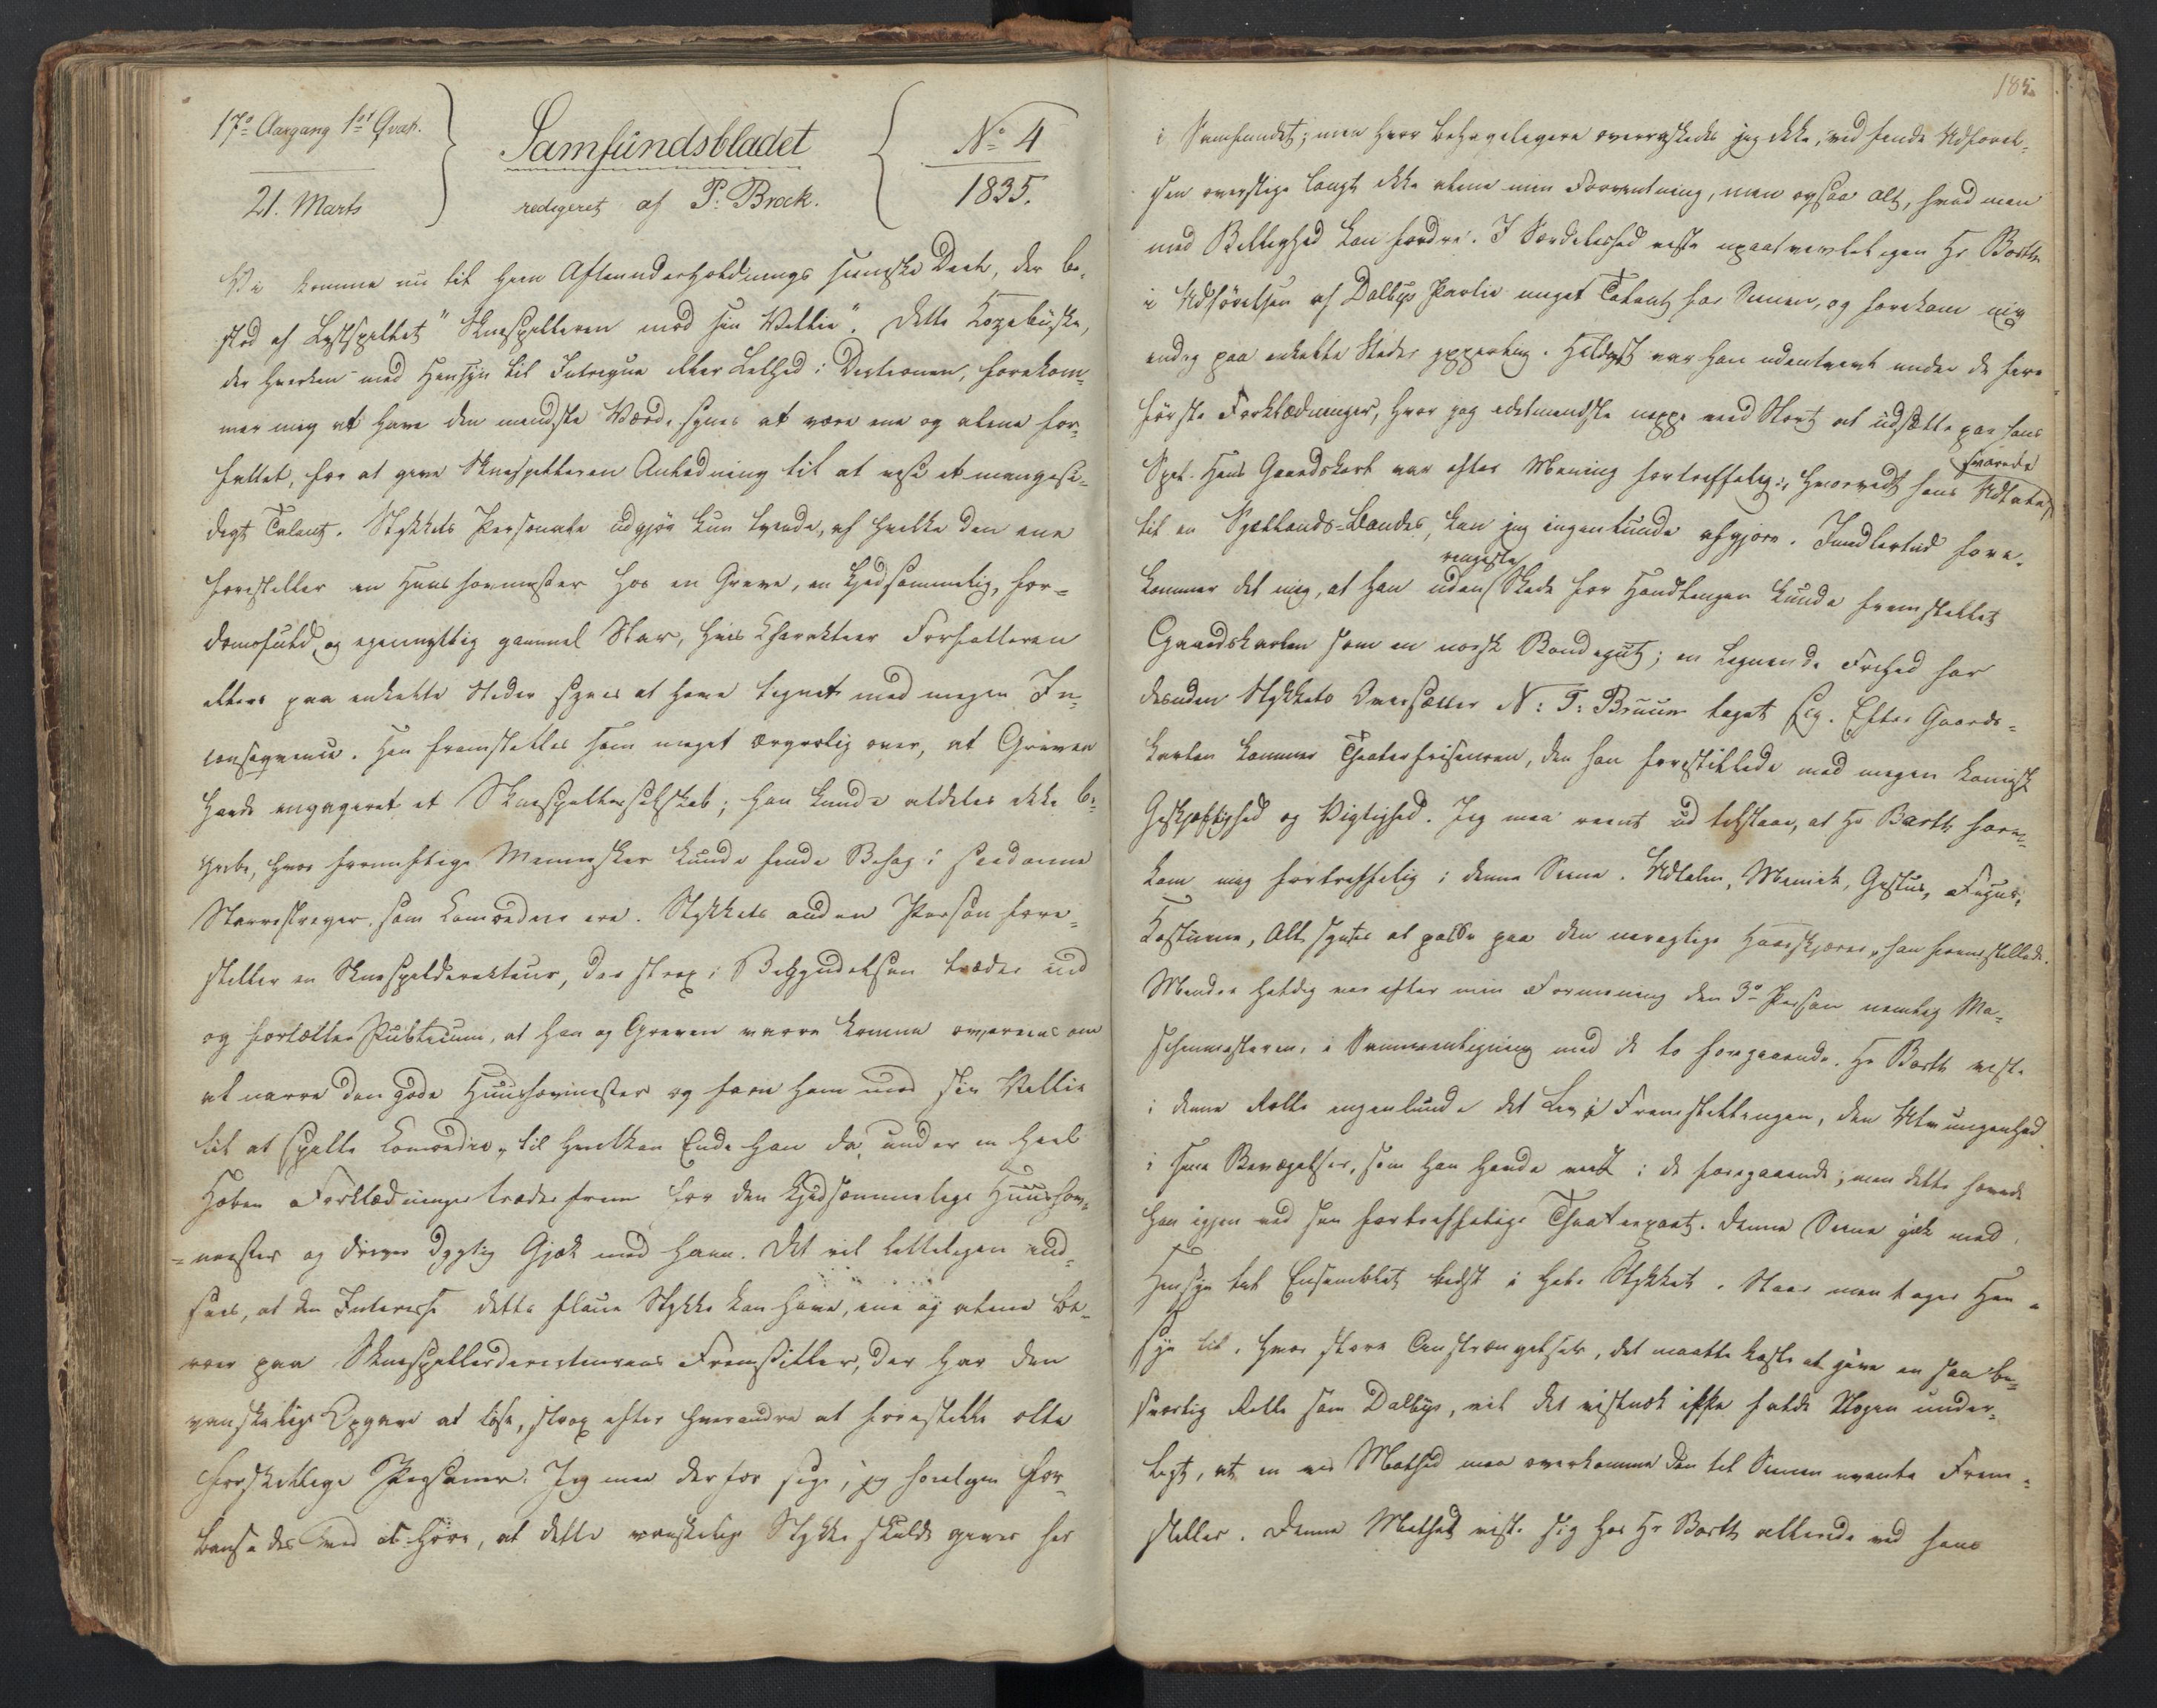 17de Aargang 1ste Qvart.
21. Marts
Samfundsbladet
redigeret af P. Brock.
No 4
1835.
Vi komme nu til hiin Aftenunderholdnings sceniske Deel, der be-
stod af Lystspillet "Skuespilleren mod sin Villie". Dette Kozebueske,
der hverken med Hensyn til Intrigue eller Lethed i Dictionen, forekom-
mer mig at have den mindste Værd, synes at være ene og alene for-
fattet, for at give Skuespilleren Anledning til at vise et mangesi-
digt Talent. Stykkets Personale udgjør kun tvende, af hvilke den ene
forestiller en Huushovmester hos en Greve, en kjedsommelig, for-
domsfuld, og egennyttig gammel Nar, hvis Charakteer Forfatteren
ellers paa enkelte Steder synes at have tegnet med megen In-
consequence. Han fremstilles som meget ærgerlig over, at Greven
havde engageret et Skuespillerselskab; han kunde aldeles ikke be-
gribe, hvor fornuftige Mennesker kunde finde Behag i saadanne
Narrestreger, som Comoedier ere. Stykkets anden Person fore-
stiller en Skuespildirekteur, der strax i Begyndelsen træder ind
og fortæller Publicum, at han og Greven vare komne overeens om
at narre den gode Huushovmester og faae ham mod sin Villie
til at spille Comoedie, til hvilken Ende han da, under en heel
Hoben Forklædninger træder frem for den kjedsommelige Huushov-
mester og driver dygtig Gjæk med ham. Det vil letteligen ind-
sees, at den Interesse dette flaue Stykke kan have, ene og alene be-
roer paa Skuespillerdirecteurens Fremstiller, der har den
vanskelige Opgave at løse, strax efter hverandre at forestille otte
forskjellige Personer. Jeg maa derfor sige, jeg heeligen for-
bausedes ved at høre, at dette vanskelige Stykke skulde gives her
185
i Samfundet; men hvor behageligere overraskedes jeg ikke, ved hende Udførel-
sen oversteg langt ikke alene min Forventning, men ogsaa alt, hvad man
med Billighed kan fordre. I Særdeleshed viste upaatvivleligen Hr Barth
i Udførelsen af Dalbys Partie meget Talent for Scenen, og forekom mig
endog paa enkelte Steder ypperlig. Heldigst var han udentvivl under de fire
første Forklædninger, hvor jeg idetmindste neppe veed Stort at udsætte paa hans
Spil. Hans Gaardskarl var efter Mening fortreffelig; hvorvidt hans Udtale svarede
til en Sjællands-Bondes, kan jeg ingenlunde afgjøre. Imidlertid fore-
kommer det mig, at han uden ringeste Skade for Handlingen kunde fremstillet
Gaardskarlen som en norsk Bondegut; en lignende Frihed har
desuden Stykkets Oversætter N. T. Bruun taget sig. Efter Gaards-
karlen kommer Theaterfriseuren, den han forestillede med megen komisk
Geskjæftighed og Vigtighed. Jeg maa reent ud tilstaae, at Hr Barth fore-
kom mig fortreffelig i denne Scene. Udtalen, Mimik, Gestus, Figur,
Kostume, Alt syntes at passe paa den nevagtige Haarskjærer, han fremstillede.
Mindre heldig var efter min Formening den 3die Person nemlig Ma-
schinmesteren, i Sammenligning med de to foregaaende. Hr Barth viste
i denne Rolle ingenlunde det Liv i Fremstillingen, den Utvungenhed
i sine Bevægelser, som han havde viist i de foregaaende; men dette hævede
han igjen ved sin fortreffelige Theaterpoet. Denne Scene gik med
Hensyn til Ensemblet bedst i hele Stykket. Naar man tager Hen-
syn til, hvor store Anstrængelser, det maatte koste at give en saa be-
sværlig Rolle som Dalbys, vil det vistnok ikke falde Nogen under-
ligt, at en vis Mathed maa overkomme den til Scenen uvante Frem-
stiller. Denne Mathed viste sig hos Hr Barth allerede ved hans